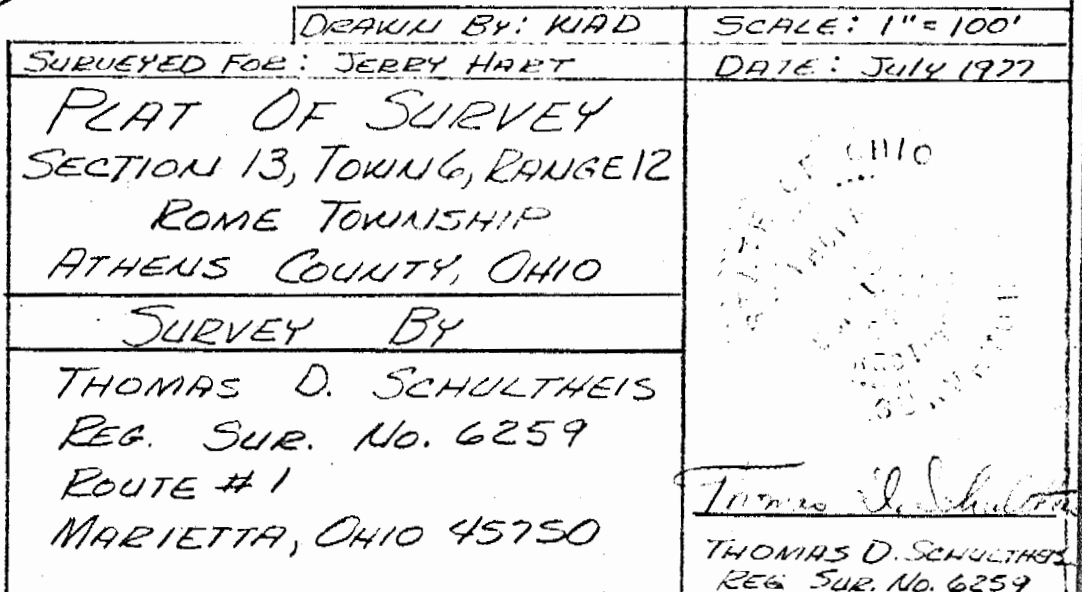 DRAWN BY: KIAD
SCALE: 1" = 100'
SURVEYED FOR: JERRY HART
DATE: July 1977
PLAT OF SURVEY
SECTION 13, TOWN 6, RANGE 12
ROME TOWNSHIP
ATHENS COUNTY, OHIO
SURVEY BY
THOMAS D. SCHULTHEIS
REG. SUR. No. 6259
ROUTE # 1
MARIETTA, OHIO 45750
OF OHIO
Thomas D. Schultheis
THOMAS D. SCHULTHEIS
REG SUR. No. 6259